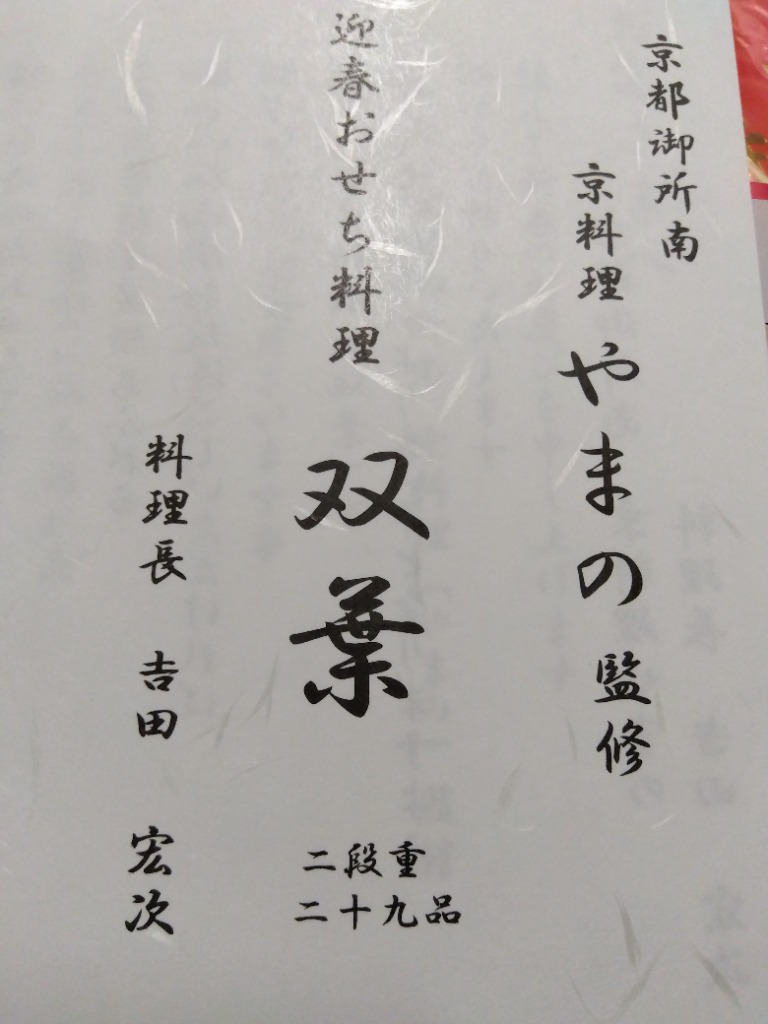 京都御所南
京料理 やまの 監修
迎春おせち料理
双葉
二段重
二十九品
料理長 吉田 宏次